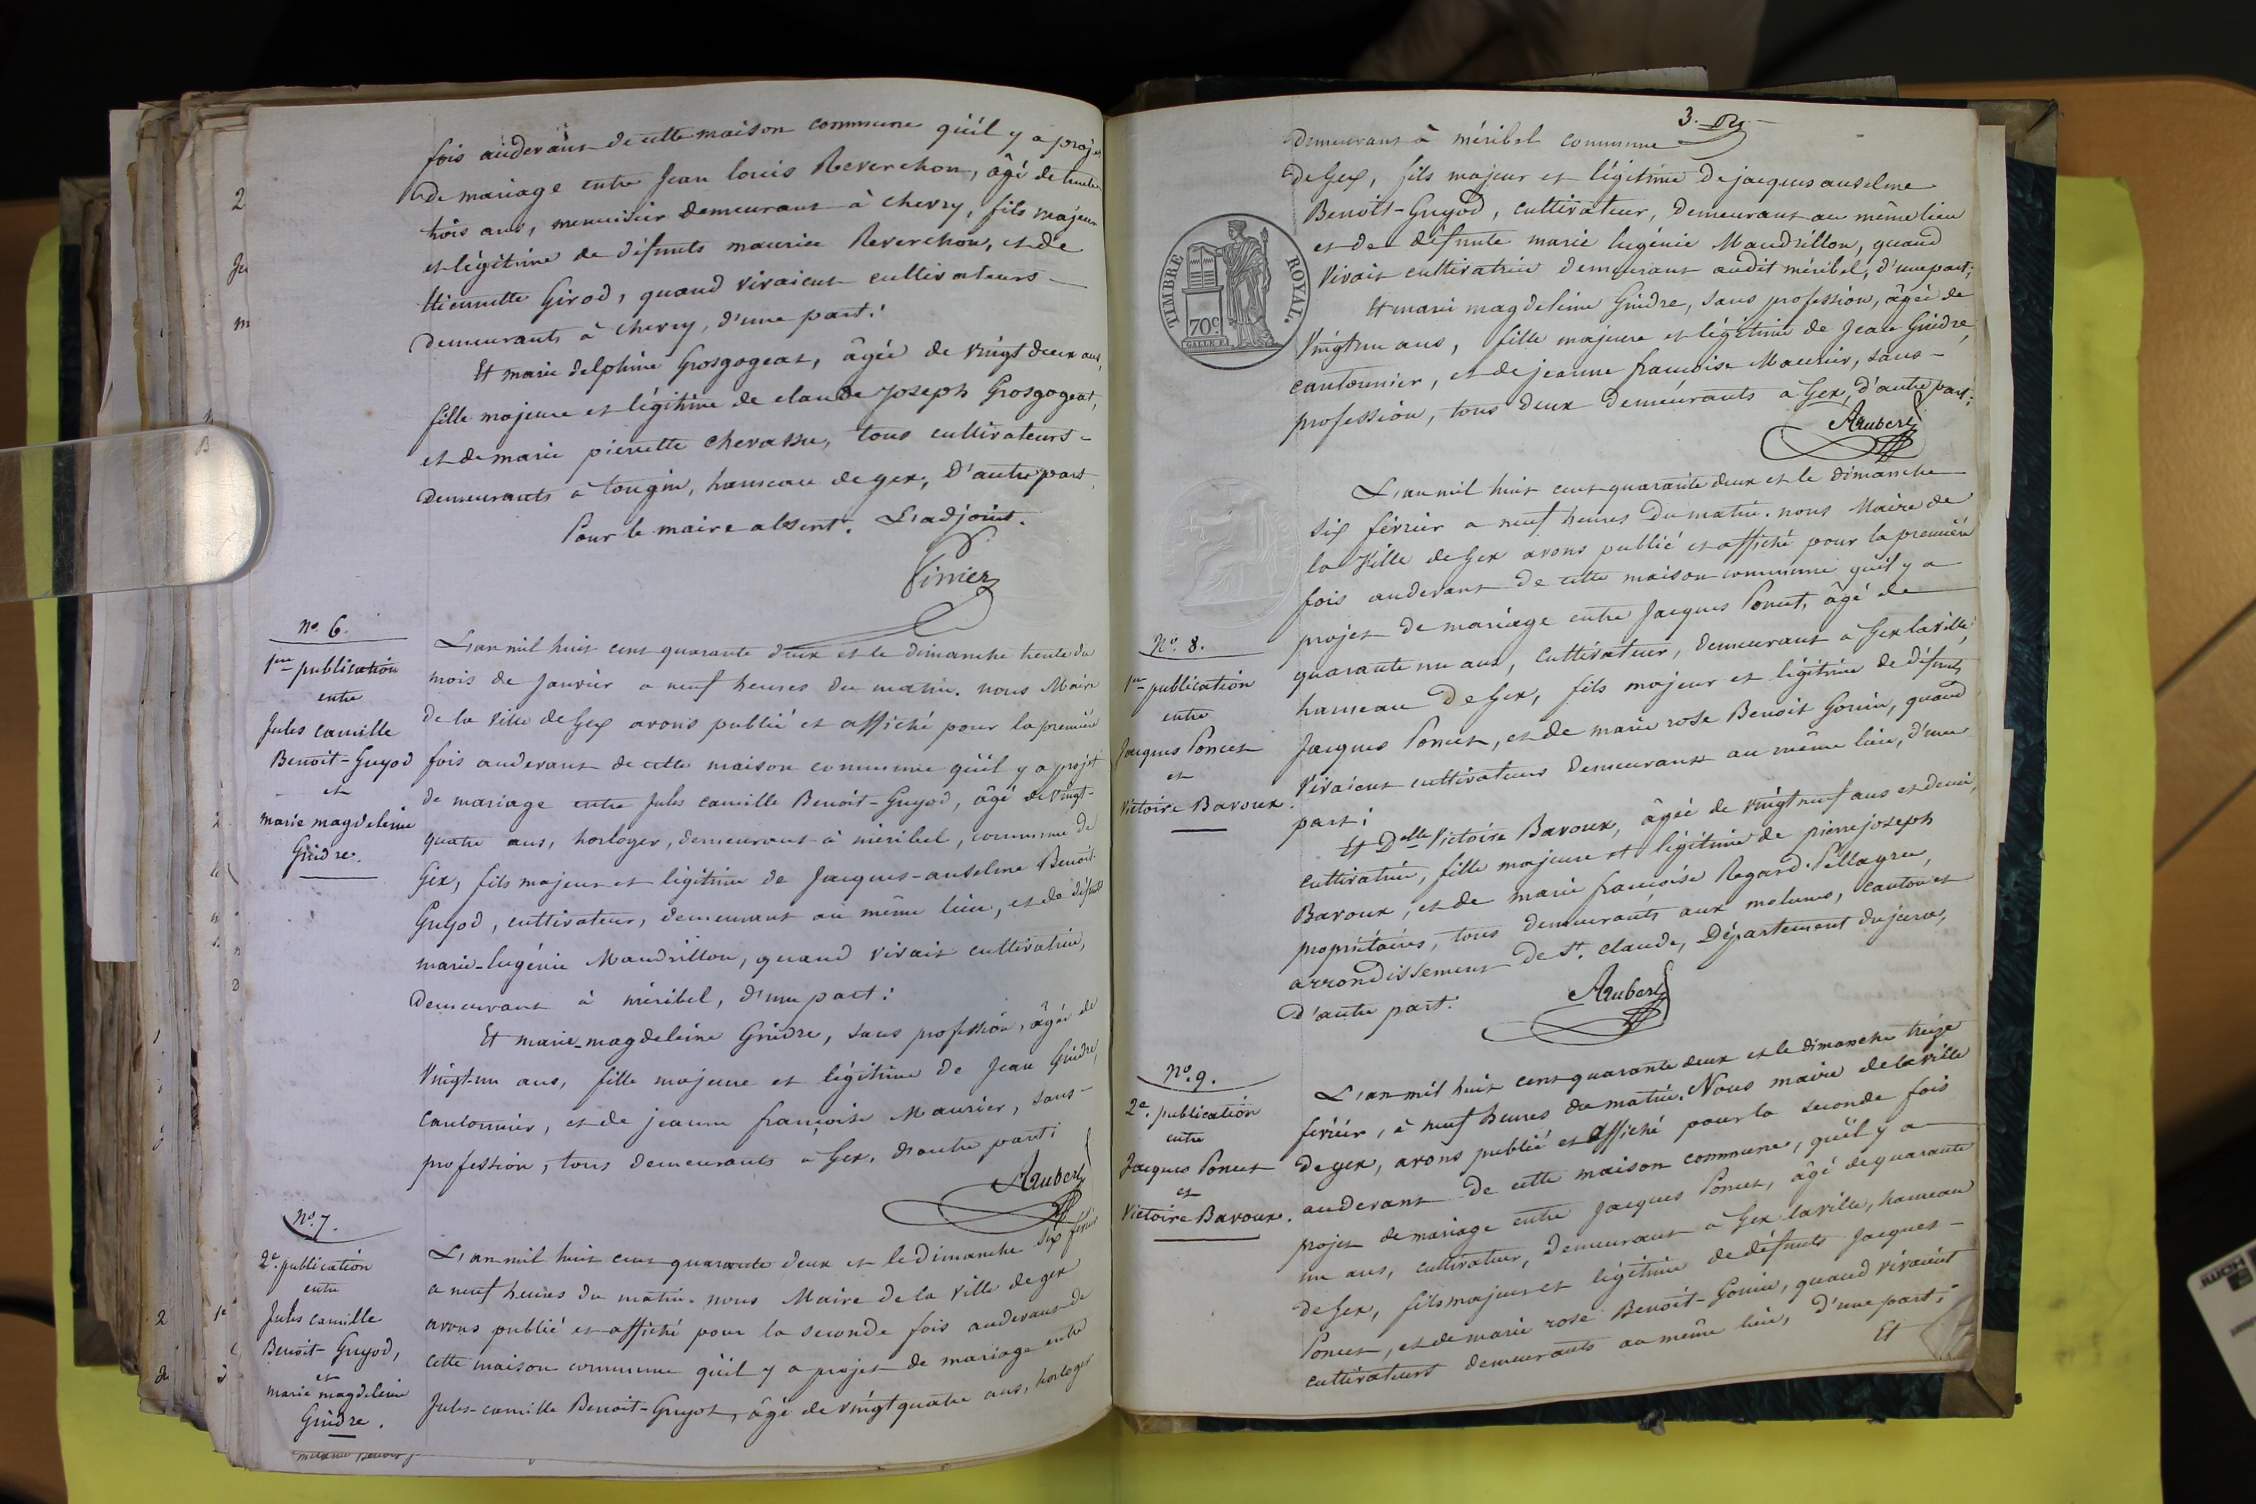 fois audevant de cette maison commune qu'il y a projet
de mariage entre Jean louis Reverchon, âgé de trente
trois ans, menuisier demeurant à chevry, fils majeur
et légitime de défunts maurice Reverchon, et de
Etiennette Girod, quand vivaient cultivateurs
demeurants à chevry, d'une part:
Et marie delphine Grosgogeat, âgée de vingt deux ans,
fille majeure et légitime de claude Joseph Grosgogeat,
et de marie pierrette chevassu, tous cultivateurs
demeurants à tougin, hameau de gex, d'autre part
Pour le maire absent. L'adjoint.
nº 6.
1ere publication
entre
Jules camille
Benoit-Guyod
et
marie magdeleine
Gridre.
L'an mil huit cent quarante deux et le dimanche trente du
mois de janvier a neuf heures du matin. nous Maire
de la ville de Gex avons publié et affiché pour la première
fois audevant de cette maison commune qu'il y a projet
de mariage entre Jules camille Benoit-Guyod, âgé de vingt-
quatre ans, horloger, demeurant à méribel, commune de
Gex, fils majeur et légitime de Jacques-anselme Benoit
Guyod, cultivateur, demeurant au même lieu, et de défunte
marie-Eugénie Maudrillon, quand vivait cultivatrice,
demeurant à méribel, d'une part:
Et marie-magdeleine Gridre, sans profession, âgée de
Vingt-un ans, fille majeure et légitime de Jean Gridre,
cantonnier, et de jeanne françoise Maurier, sans-
profession, tous demeurants à Gex, d'autre part:
Aubert
nº 7.
2e. publication
entre
Jules camille
Benoit-Guyod,
et
marie magdeleine
Gridre.
L'an mil huit cent quarante deux et le dimanche six février
a neuf heures du matin. nous Maire de la ville de gex
avons publié et affiché pour la seconde fois audevant de
cette maison commune qu'il y a projet de mariage entre
Jules-camille Benoit-Guyot, âgé de vingt quatre ans, horloger
3.
demeurant à méribel commune
de Gex, fils majeur et légitime de jacques anselme
Benoit-Guyod, cultivateur, demeurant au même lieu
et de défunte marie Eugénie Maudrillon, quand
vivait cultivatrice demeurant audit méribel, d'une part;
Et marie magdeleine Gridre, sans profession, âgée de
Vingt-un ans, fille majeure et légitime de Jean Gridre,
cantonnier, et de jeanne françoise Maurier, sans-
profession, tous deux demeurants à Gex, d'autre part:
Aubert
TIMBRE ROYAL.
70c
nº 8.
1re publication
entre
Jacques Poncet
et
Victoire Baroux.
L'an mil huit cent quarante deux et le dimanche
six février a neuf heures du matin. nous Maire de
la Ville de Gex avons publié et affiché pour la première
fois audevant de cette maison commune qu'il y a
projet de mariage entre Jacques Poncet, âgé de
quarante un ans, cultivateur, demeurant à Gex la ville,
hameau de Gex, fils majeur et légitime de défunts
Jacques Poncet, et de marie rose Benoit Gonin, quand
vivaient cultivateurs demeurant au même lieu, d'une
part;
Et Delle Victoire Baroux, âgée de vingt neuf ans et demi,
cultivatrice, fille majeure et légitime de pierre joseph
Baroux, et de marie françoise Regard-Pellagru,
propriétaires, tous demeurants aux molunes, canton et
arrondissement de St. claude, Département du jura,
d'autre part.
Aubert
nº 9.
2e. publication
entre
Jacques Poncet
et
Victoire Baroux.
L'an mil huit cent quarante deux et le dimanche treize
février, à neuf heures du matin. Nous maire de la ville
de gex, avons publié et affiché pour la seconde fois
audevant de cette maison commune, qu'il y a
projet de mariage entre Jacques Poncet, âgé de quarante
un ans, cultivateur, demeurant à Gex la ville, hameau
de Gex, fils majeur et légitime de défunts Jacques-
Poncet, et de marie rose Benoit-Gonin, quand vivaient
cultivateurs demeurants au même lieu, d'une part;
Et